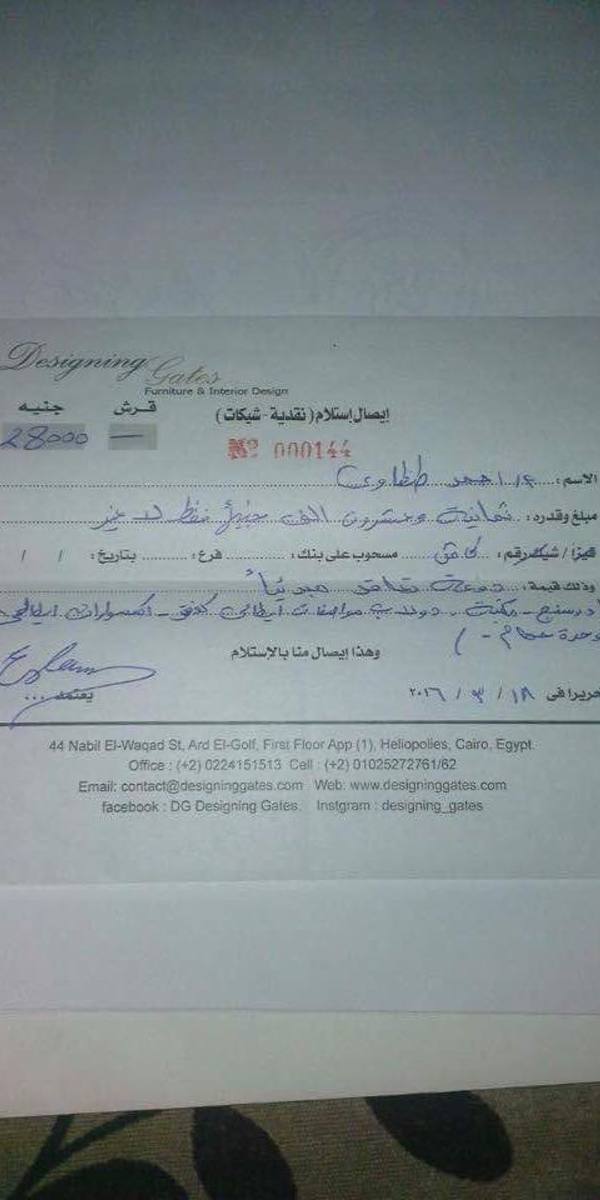 Designing Gates
Furniture & Interior Design
جنيه قرش
28000 —
إيصال إستلام ( نقدية - شيكات )
Nº 000144
الاسم : م/ احمد طنطاوى
مبلغ وقدره : ثمانية وعشرون الف جنيهاً فقط لا غير
شيك رقم : مسحوب على بنك : فرع : بتاريخ : / /
وذلك قيمة : دفعة تعاقد مبدئياً
درسنج - مكتبة - دولاب مواصفات ايطالى - اكسسوارات ايطالى
وحدة حمام - )
وهذا إيصال منا بالإستلام
تحريرا فى ١٨ / ٣ / ٢٠١٦
يعتمد ...
44 Nabil El-Waqad St, Ard El-Golf, First Floor App (1), Heliopolies, Cairo, Egypt.
Office : (+2) 0224151513 Cell : (+2) 01025272761/62
Email: contact@designinggates.com Web: www.designinggates.com
facebook : DG Designing Gates. Instgram : designing_gates